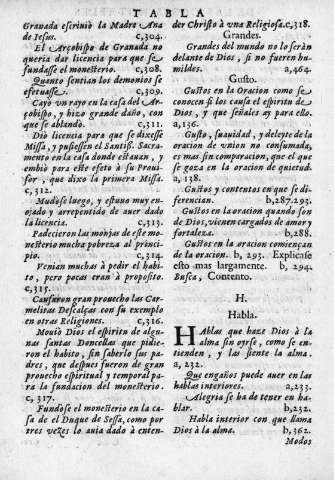 TABLA
Granada escriuiò la Madre Ana
de Iesus. c,304.
El Arçobispo de Granada no
queria dar licencia para que se
fundasse el monesterio. c,308.
Quanto sentian los demonios se
efetuasse. c,309.
Cayò vn rayo en la casa del Ar-
çobispo, y hizo grande daño, con
que se ablandò. c,311.
Diò licencia para que se dixesse
Missa, y pusiessen el Santiss. Sacra-
mento en la casa donde estauan, y em-
biò para esto efeto à su Proui-
sor, que dixo la primera Missa.
c,312.
Mudòse luego, y estuuo muy en-
ojado y arrepentido de auer dado
la licencia. c,313.
Padecieron las monjas de ese mo-
nesterio mucha pobreza al princi-
pio. c,314.
Venian muchas à pedir el habi-
to, pero pocas eran à proposito.
c,315.
Causaron gran prouecho las Car-
melitas Descalças con su exemplo
en otras Religiones. c,316.
Mouiò Dios el espiritu de algu-
nas santas Doncellas que pidie-
ron el habito, sin saberlo sus pa-
dres, que despues fueron de gran
prouecho espiritual y temporal pa-
ra la fundacion del monesterio.
c,317.
Fundòse el monesterio en la ca-
sa de el Duque de Sessa, como por
tres vezes lo auia dado à enten-
der Christo à vna Religiosa. c,318.
Grandes.
Grandes del mundo no lo seràn
delante de Dios, si no fueren hu-
mildes. a,464.
Gusto.
Gustos en la Oracion como se
conocen si los causa el espiritu de
Dios, y que señales ay para ello.
a,136.
Gusto, suauidad, y deleyte de la
oracion de vnion no consumada,
es mas sin comparacion, que el que
se goza en la oracion de quietud.
a,138.
Gustos y contentos en que se di-
ferencian. b,287.293.
Gustos en la oracion quando son
de Dios, vienen cargados de amor y
fortaleza. b,288.
Gustos en la oracion comiençan
de la oracion. b, 293. Explicase
esto mas largamente. b, 294.
Busca, Contento.
H.
Habla.
HAblas que haze Dios à la
alma sin oyrse, como se en-
tienden, y las siente la alma.
a, 232.
Que engaños puede auer en las
hablas interiores. a,233.
Alegria se ha de tener en ha-
blar. b,232.
Habla interior con que llama
Dios à la alma. b,362.
Modos